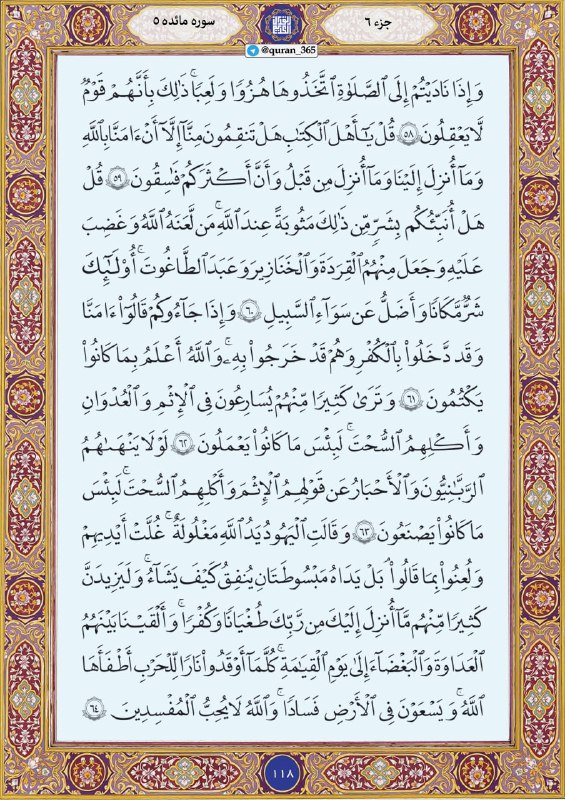 جزء ۶
سوره مائده ۵
@quran_365
وَإِذَا نَادَيْتُمْ إِلَى ٱلصَّلَوٰةِ ٱتَّخَذُوهَا هُزُوًا وَلَعِبًا ۚ ذَٰلِكَ بِأَنَّهُمْ قَوْمٌ
لَّا يَعْقِلُونَ ۵۸ قُلْ يَـٰٓأَهْلَ ٱلْكِتَـٰبِ هَلْ تَنقِمُونَ مِنَّآ إِلَّآ أَنْ ءَامَنَّا بِٱللَّهِ
وَمَآ أُنزِلَ إِلَيْنَا وَمَآ أُنزِلَ مِن قَبْلُ وَأَنَّ أَكْثَرَكُمْ فَـٰسِقُونَ ۵۹ قُلْ
هَلْ أُنَبِّئُكُم بِشَرٍّ مِّن ذَٰلِكَ مَثُوبَةً عِندَ ٱللَّهِ ۚ مَن لَّعَنَهُ ٱللَّهُ وَغَضِبَ
عَلَيْهِ وَجَعَلَ مِنْهُمُ ٱلْقِرَدَةَ وَٱلْخَنَازِيرَ وَعَبَدَ ٱلطَّـٰغُوتَ ۚ أُو۟لَـٰٓئِكَ
شَرٌّ مَّكَانًا وَأَضَلُّ عَن سَوَآءِ ٱلسَّبِيلِ ۶۰ وَإِذَا جَآءُوكُمْ قَالُوٓا۟ ءَامَنَّا
وَقَد دَّخَلُوا۟ بِٱلْكُفْرِ وَهُمْ قَدْ خَرَجُوا۟ بِهِۦ ۚ وَٱللَّهُ أَعْلَمُ بِمَا كَانُوا۟
يَكْتُمُونَ ۶۱ وَتَرَىٰ كَثِيرًا مِّنْهُمْ يُسَـٰرِعُونَ فِى ٱلْإِثْمِ وَٱلْعُدْوَٰنِ
وَأَكْلِهِمُ ٱلسُّحْتَ ۚ لَبِئْسَ مَا كَانُوا۟ يَعْمَلُونَ ۶۲ لَوْلَا يَنْهَىٰهُمُ
ٱلرَّبَّـٰنِيُّونَ وَٱلْأَحْبَارُ عَن قَوْلِهِمُ ٱلْإِثْمَ وَأَكْلِهِمُ ٱلسُّحْتَ ۚ لَبِئْسَ
مَا كَانُوا۟ يَصْنَعُونَ ۶۳ وَقَالَتِ ٱلْيَهُودُ يَدُ ٱللَّهِ مَغْلُولَةٌ ۚ غُلَّتْ أَيْدِيهِمْ
وَلُعِنُوا۟ بِمَا قَالُوا۟ ۘ بَلْ يَدَاهُ مَبْسُوطَتَانِ يُنفِقُ كَيْفَ يَشَآءُ ۚ وَلَيَزِيدَنَّ
كَثِيرًا مِّنْهُم مَّآ أُنزِلَ إِلَيْكَ مِن رَّبِّكَ طُغْيَـٰنًا وَكُفْرًا ۚ وَأَلْقَيْنَا بَيْنَهُمُ
ٱلْعَدَٰوَةَ وَٱلْبَغْضَآءَ إِلَىٰ يَوْمِ ٱلْقِيَـٰمَةِ ۚ كُلَّمَآ أَوْقَدُوا۟ نَارًا لِّلْحَرْبِ أَطْفَأَهَا
ٱللَّهُ ۚ وَيَسْعَوْنَ فِى ٱلْأَرْضِ فَسَادًا ۚ وَٱللَّهُ لَا يُحِبُّ ٱلْمُفْسِدِينَ ۶۴
۱۱۸